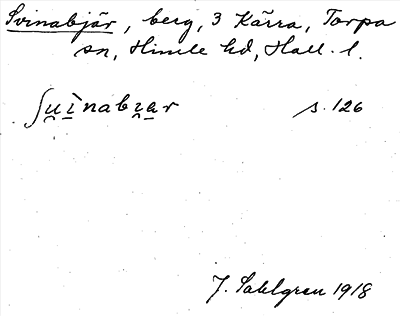 Svinabjär, berg, 3 Kärra, Torpa
sn, Himle hd, Hall. l.
s. 126
J. Sahlgren 1918